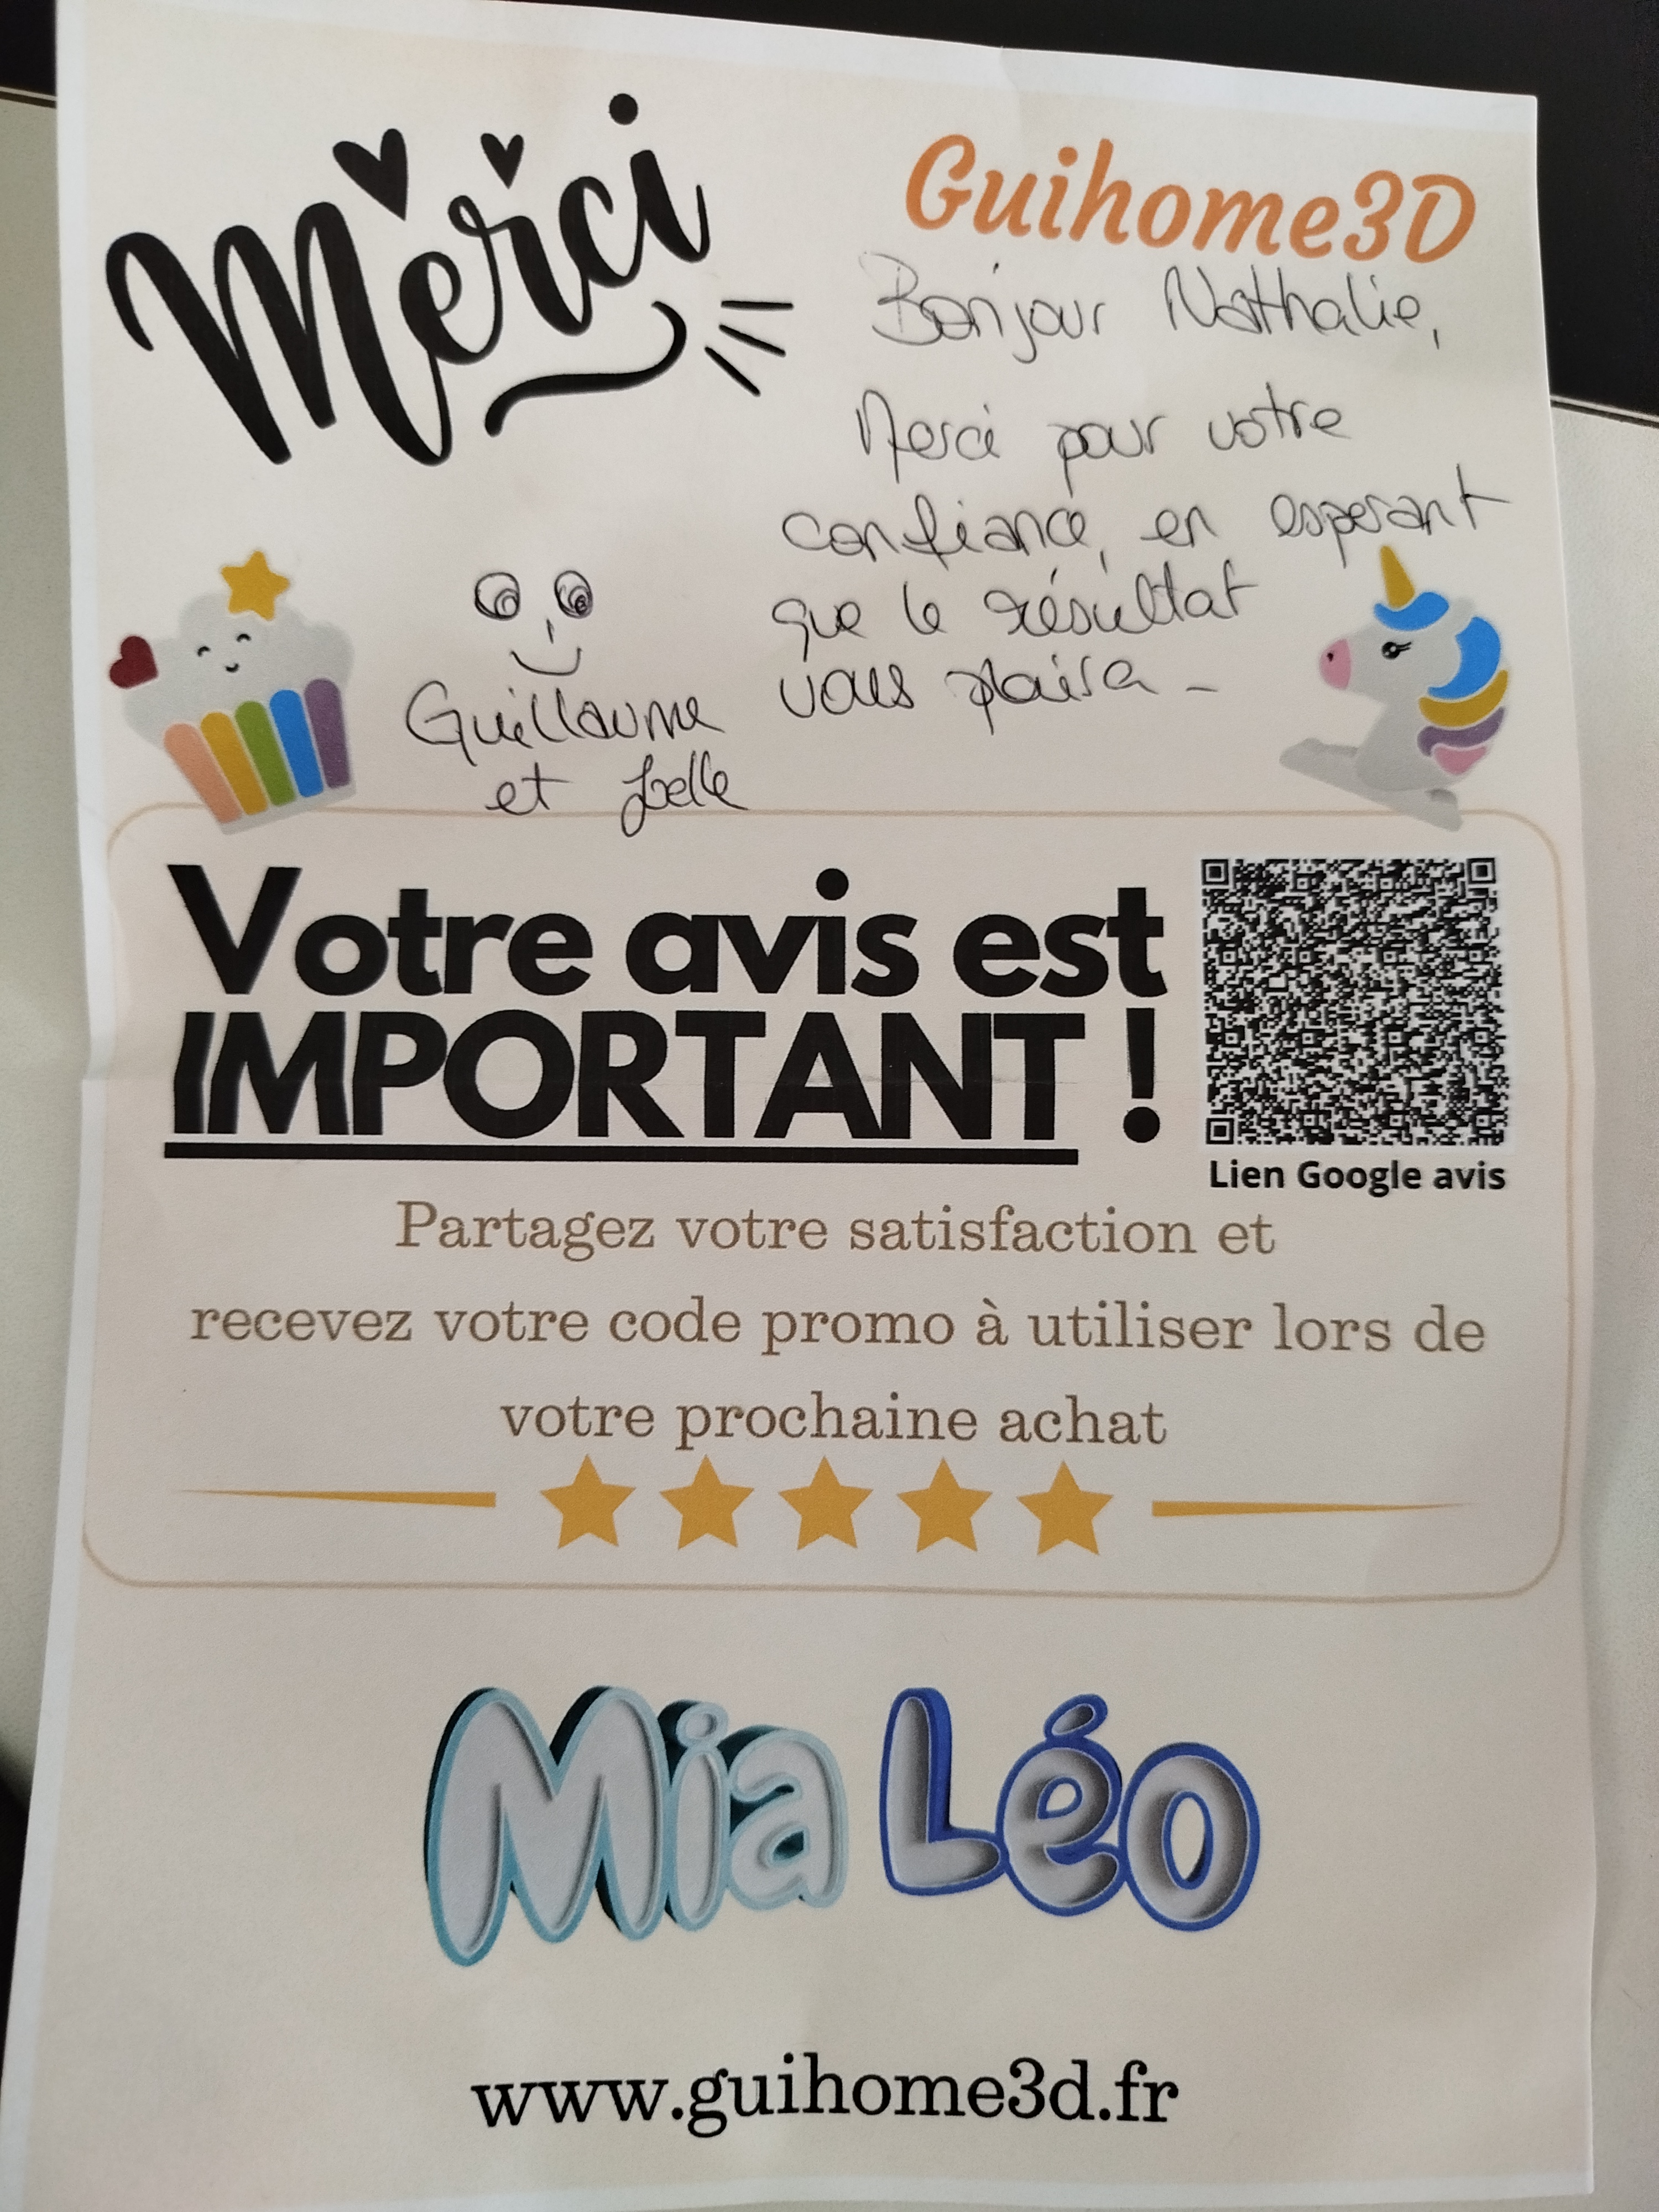 Merci
Guihome3D
Bonjour Nathalie,
Merci pour votre
confiance, en esperant
que le résultat
vous plaira -
Guillaume
et Joelle
Votre avis est
IMPORTANT !
Lien Google avis
Partagez votre satisfaction et
recevez votre code promo à utiliser lors de
votre prochaine achat
Mia Léo
www.guihome3d.fr